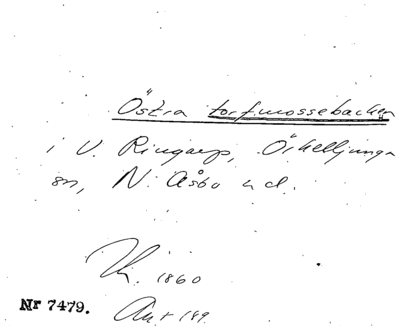 Östra torfmossebacken
i V. Ringarp, Örkelljunga
sn, N. Åsbo hd.
1860
Nr 7479.